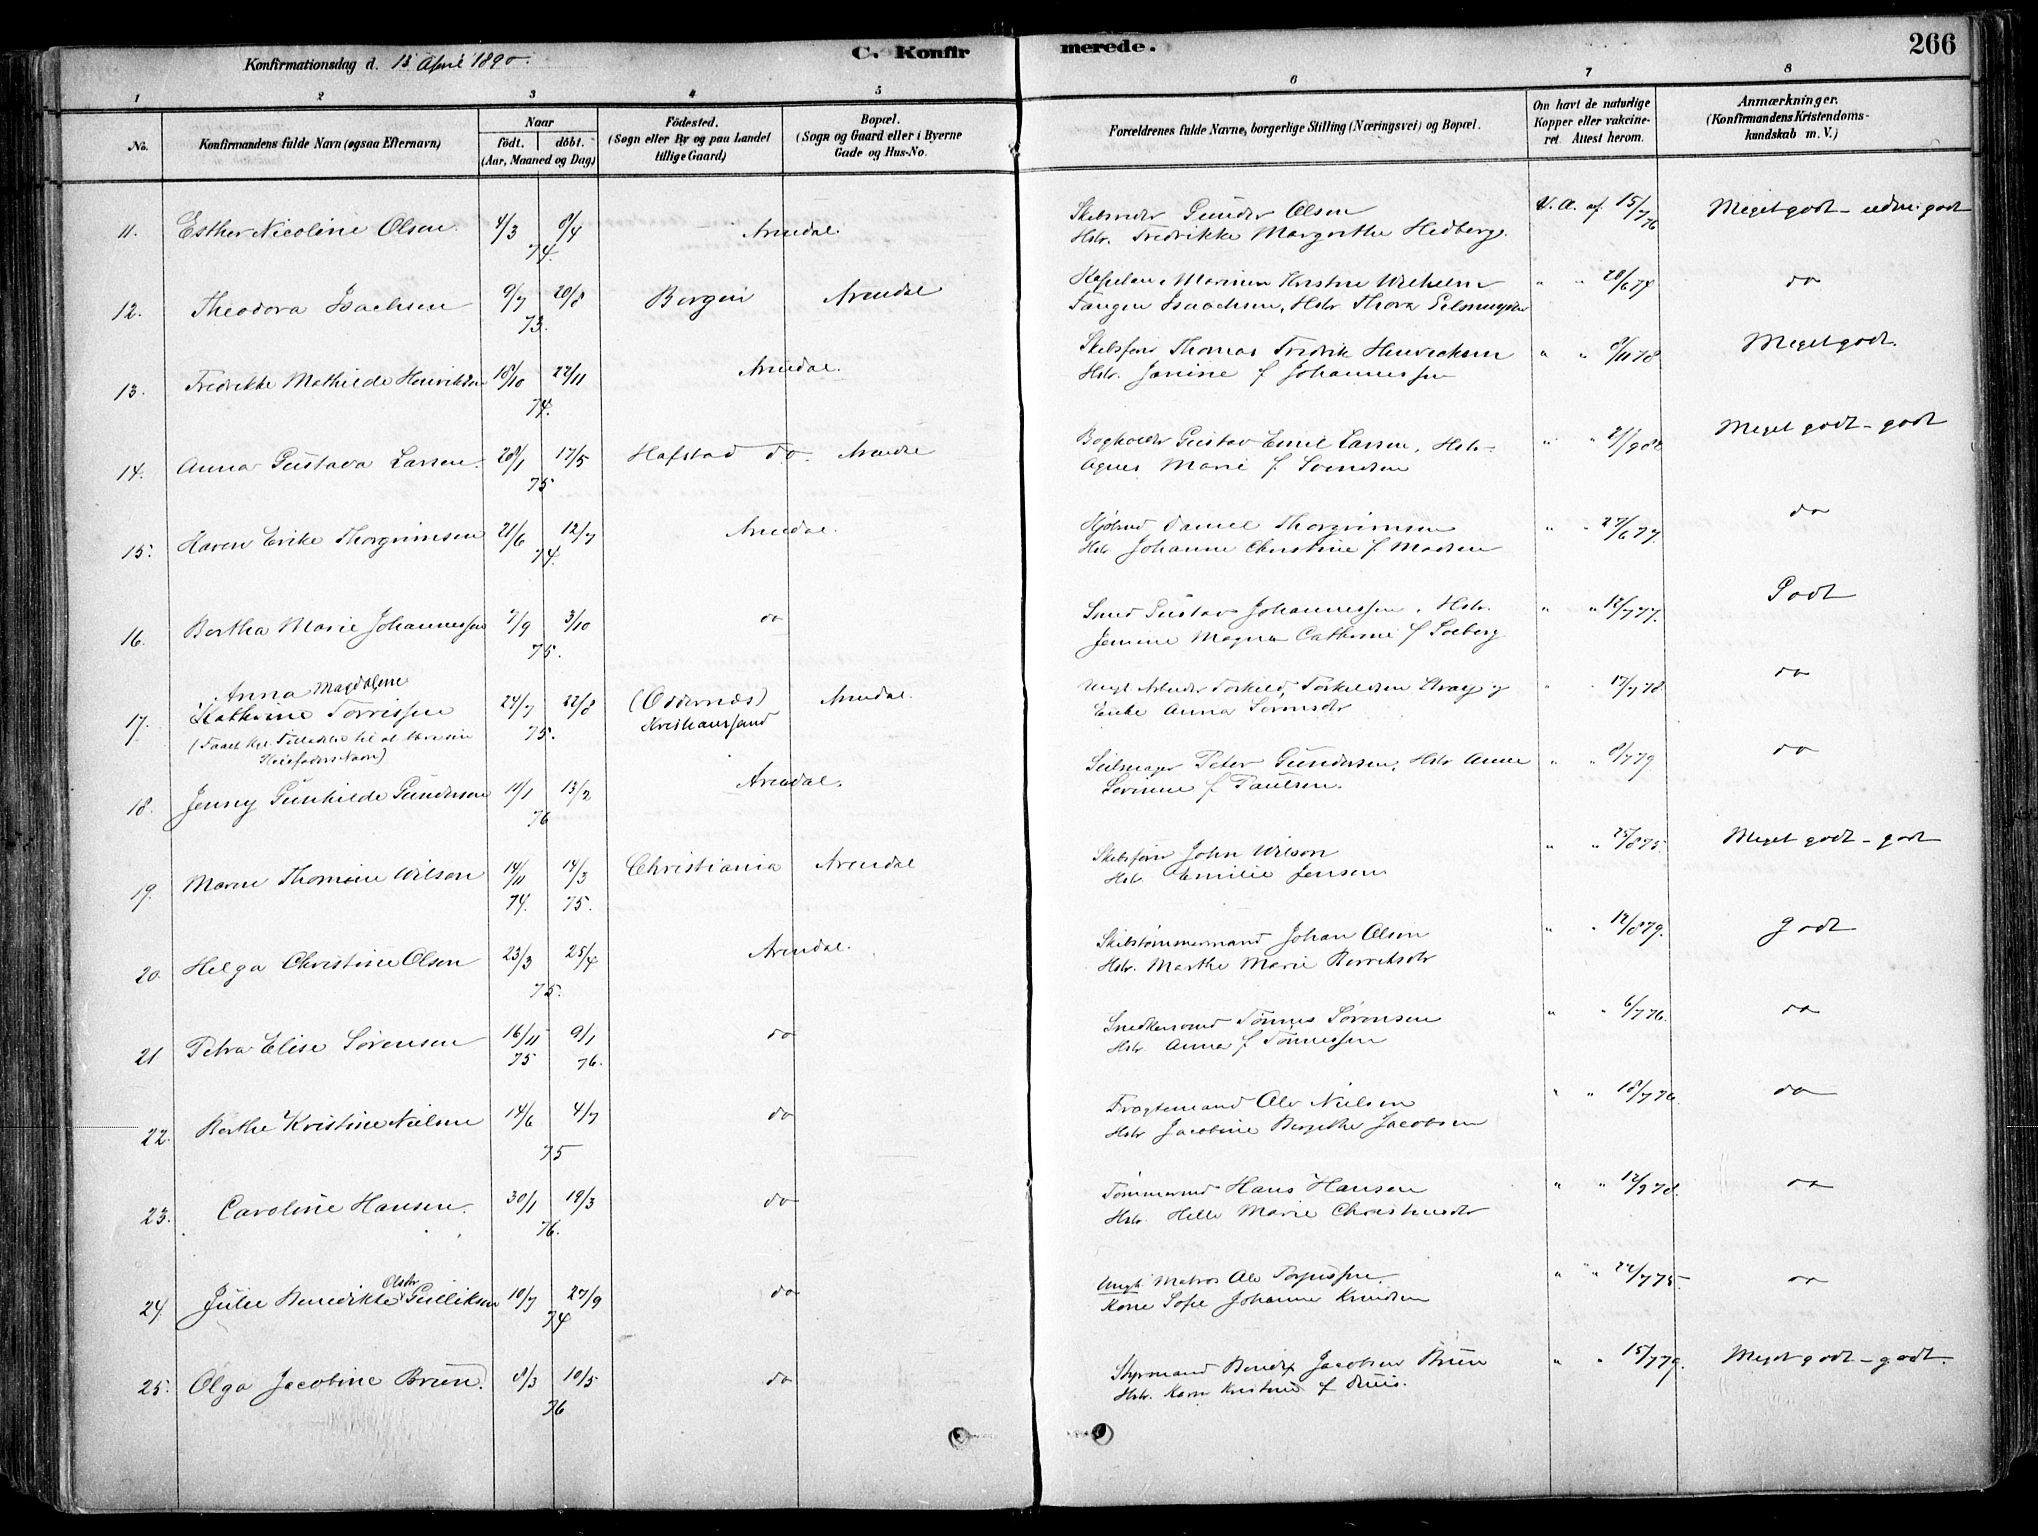 Konfirmationsdag d. 13 April 1890.
C. Konfirmerede.
266
1 2 3 4 5 6 7 8
No.
Konfirmandens fulde Navn (ogsaa Efternavn)
Naar
födt. döbt.
(Aar, Maaned og Dag)
Födested.
(Sogn eller By og paa Landet tillige Gaard)
Bopæl.
(Sogn og Gaard eller i Byerne Gade og Hus-No.
Forældrenes fulde Navne, borgerlige Stilling (Næringsvei) og Bopæl.
Om havt de naturlige Kopper eller vakcineret. Attest herom.
Anmærkninger.
(Konfirmandens Kristendomskundskab m. V.)
11. Esther Nicoline Olsen. 4/3 8/4 74. Arendal. Skibsreder Gunder Olsen V. A. af 15/7 76 Meget godt - udm. godt
Hstr. Fredrikke Margrethe Hedberg.
12. Theodora Isachsen 9/7 20/8 73. Bergen Arendal Marinius Kristen Wilhelm " " 20/6 74 do
Fangen Isaachsen, Hstr Thora
13. Fredrikke Mathilde Henriksen 18/10 22/11 74. Arendal. Skibsfører Thomas Fredrik Henrichsen " " 8/11 78 Meget godt.
Hstr. Janine f Johannessen
14. Anna Gustava Larsen. 28/1 17/5 75 Hafstad do. Arendal Bogholder Gustav Emil Larsen, Hstr. " " 21/9 82 Meget godt - godt
Agnes Marie f Svendsen
15. Karen Erike Thorgrimsen 21/6 12/7 74. Arendal. Daniel Thorgrimsen " " 27/6 77. do
Hstr Johanne Christine f Madsen
16. Bertha Marie Johannessen 7/9 3/10 75. do Smed Gustav Johannessen, Hstr. " " 12/7 77. Godt
Jensine Magna Cathrine f Soeberg
17. Anna Magdalene
Kathrine Torrissen 24/7 22/8 75. (Oddernæs) Kristianssand Arendal. Ungk Arbeider Torkild Torkildsen Straz og " " 17/7 78. do
Enke Anna Sørensdr
18. Jenny Gunhilde Gundersen 11/1 13/2 76 Arendal. Seilmager Peter Gundersen, Hstr Anne " " 8/7 79 do
Severine f Paulsen.
19. Maren Thomine Wilson 14/11 74. 14/3 75. Christiania Arendal Skibsfører John Wilson " " 25/8 75. Meget godt - godt
Hstr. Emilie Jensen
20. Helga Christine Olsen 23/3 25/4 75. Arendal. Skibstømmermand Johan Olsen " " 12/8 79. godt
Hstr. Marthe Marie
21. Petra Elise Sørensen 16/11 75 9/1 76. do Snedkersvend Tønnes Sørensen " " 6/7 76. do
Hstr. Anna f Tønnessen
22. Berthe Kristine Nielsen 14/6 4/7 75 do Fragtemand Ole Nielsen " " 18/7 76. do
Hstr Jacobine Bergitte Jacobsen
23. Caroline Hansen. 30/1 19/3 76. do Tømmermd Hans Hansen " " 12/9 78. do
Hstr. Helle Marie Christensdr
24. Julie Benedikte Olsdr Gulliksen 10/7 27/9 74 do Ungk. Matros Ole Torjussen. " " 22/7 75. do
Kone Sofie Johanne Knudsen
25. Olga Jacobine Bruun. 8/3 10/5 76 do Styrmand Bendix Jacobsen Bruun " " 15/7 79. Meget godt - godt.
Hstr. Karen Kristine f